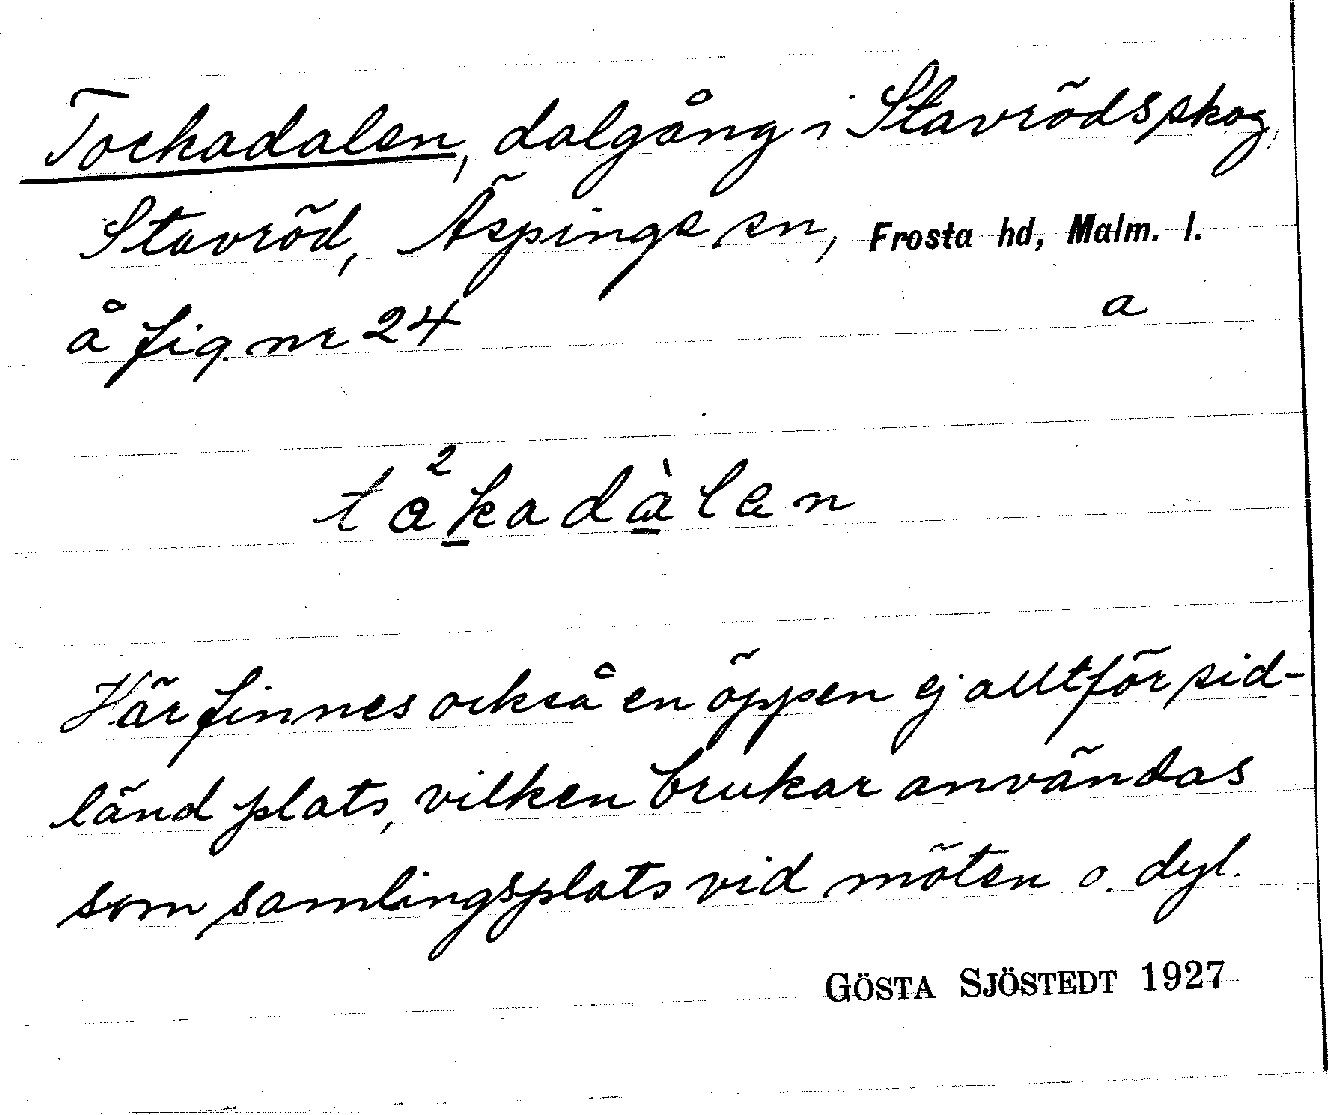 Tockadalen, dalgång i Stavrödsskog,
Stavröd, Äspinge sn, Frosta hd, Malm. l.
å fig. nr 24 a
tå²kadàlen
Här finnes också en öppen ej alltför sid-
länd plats, vilken brukar användas
som samlingsplats vid möten o. dyl.
GÖSTA SJÖSTEDT 1927